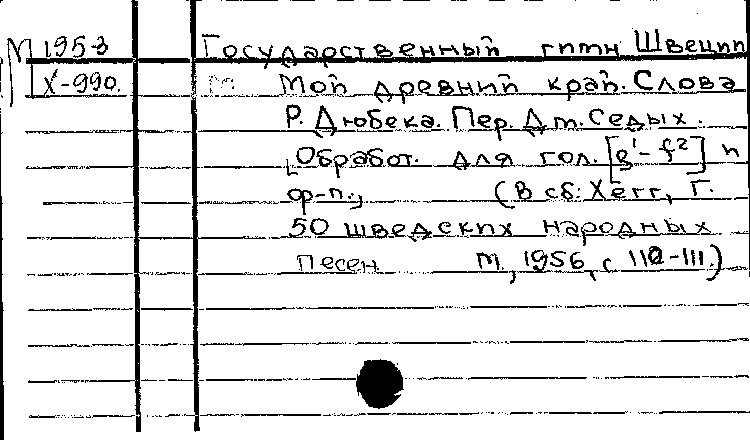 М 1953 Государственный гимн Швеции
X-990. Мой древний край. Слова
Р. Дюбека. Пер. Дм. Седых.
[Обработ. для гол. [e¹-f²] и
ор-п., (В сб: Хегг, Г.
50 шведских народных
песен М., 1956, с 110-111.)